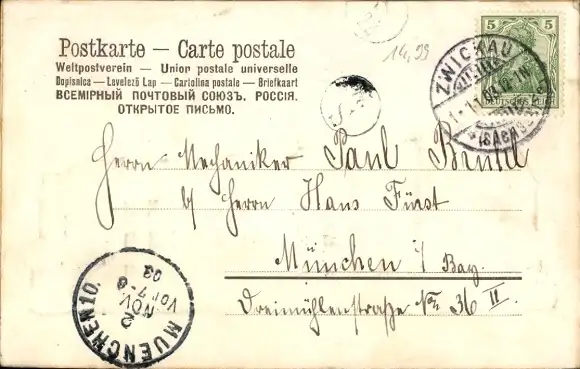 14,99
Postkarte — Carte postale
Weltpostverein — Union postale universelle
Dopisnica — Levelező Lap — Cartolina postale — Briefkaart
ВСЕМІРНЫЙ ПОЧТОВЫЙ СОЮЗЪ. РОССІЯ.
ОТКРЫТОЕ ПИСЬМО.
5 5
DEUTSCHES REICH
ZWICKAU
(SACHSEN)
Herrn Mechaniker Paul
b/ Herrn Hans Fürst
München i/ Bay.
Dreimühlenstraße Nr. 36 II
MUENCHEN 10.
2
NOV
VOR 7-8
03